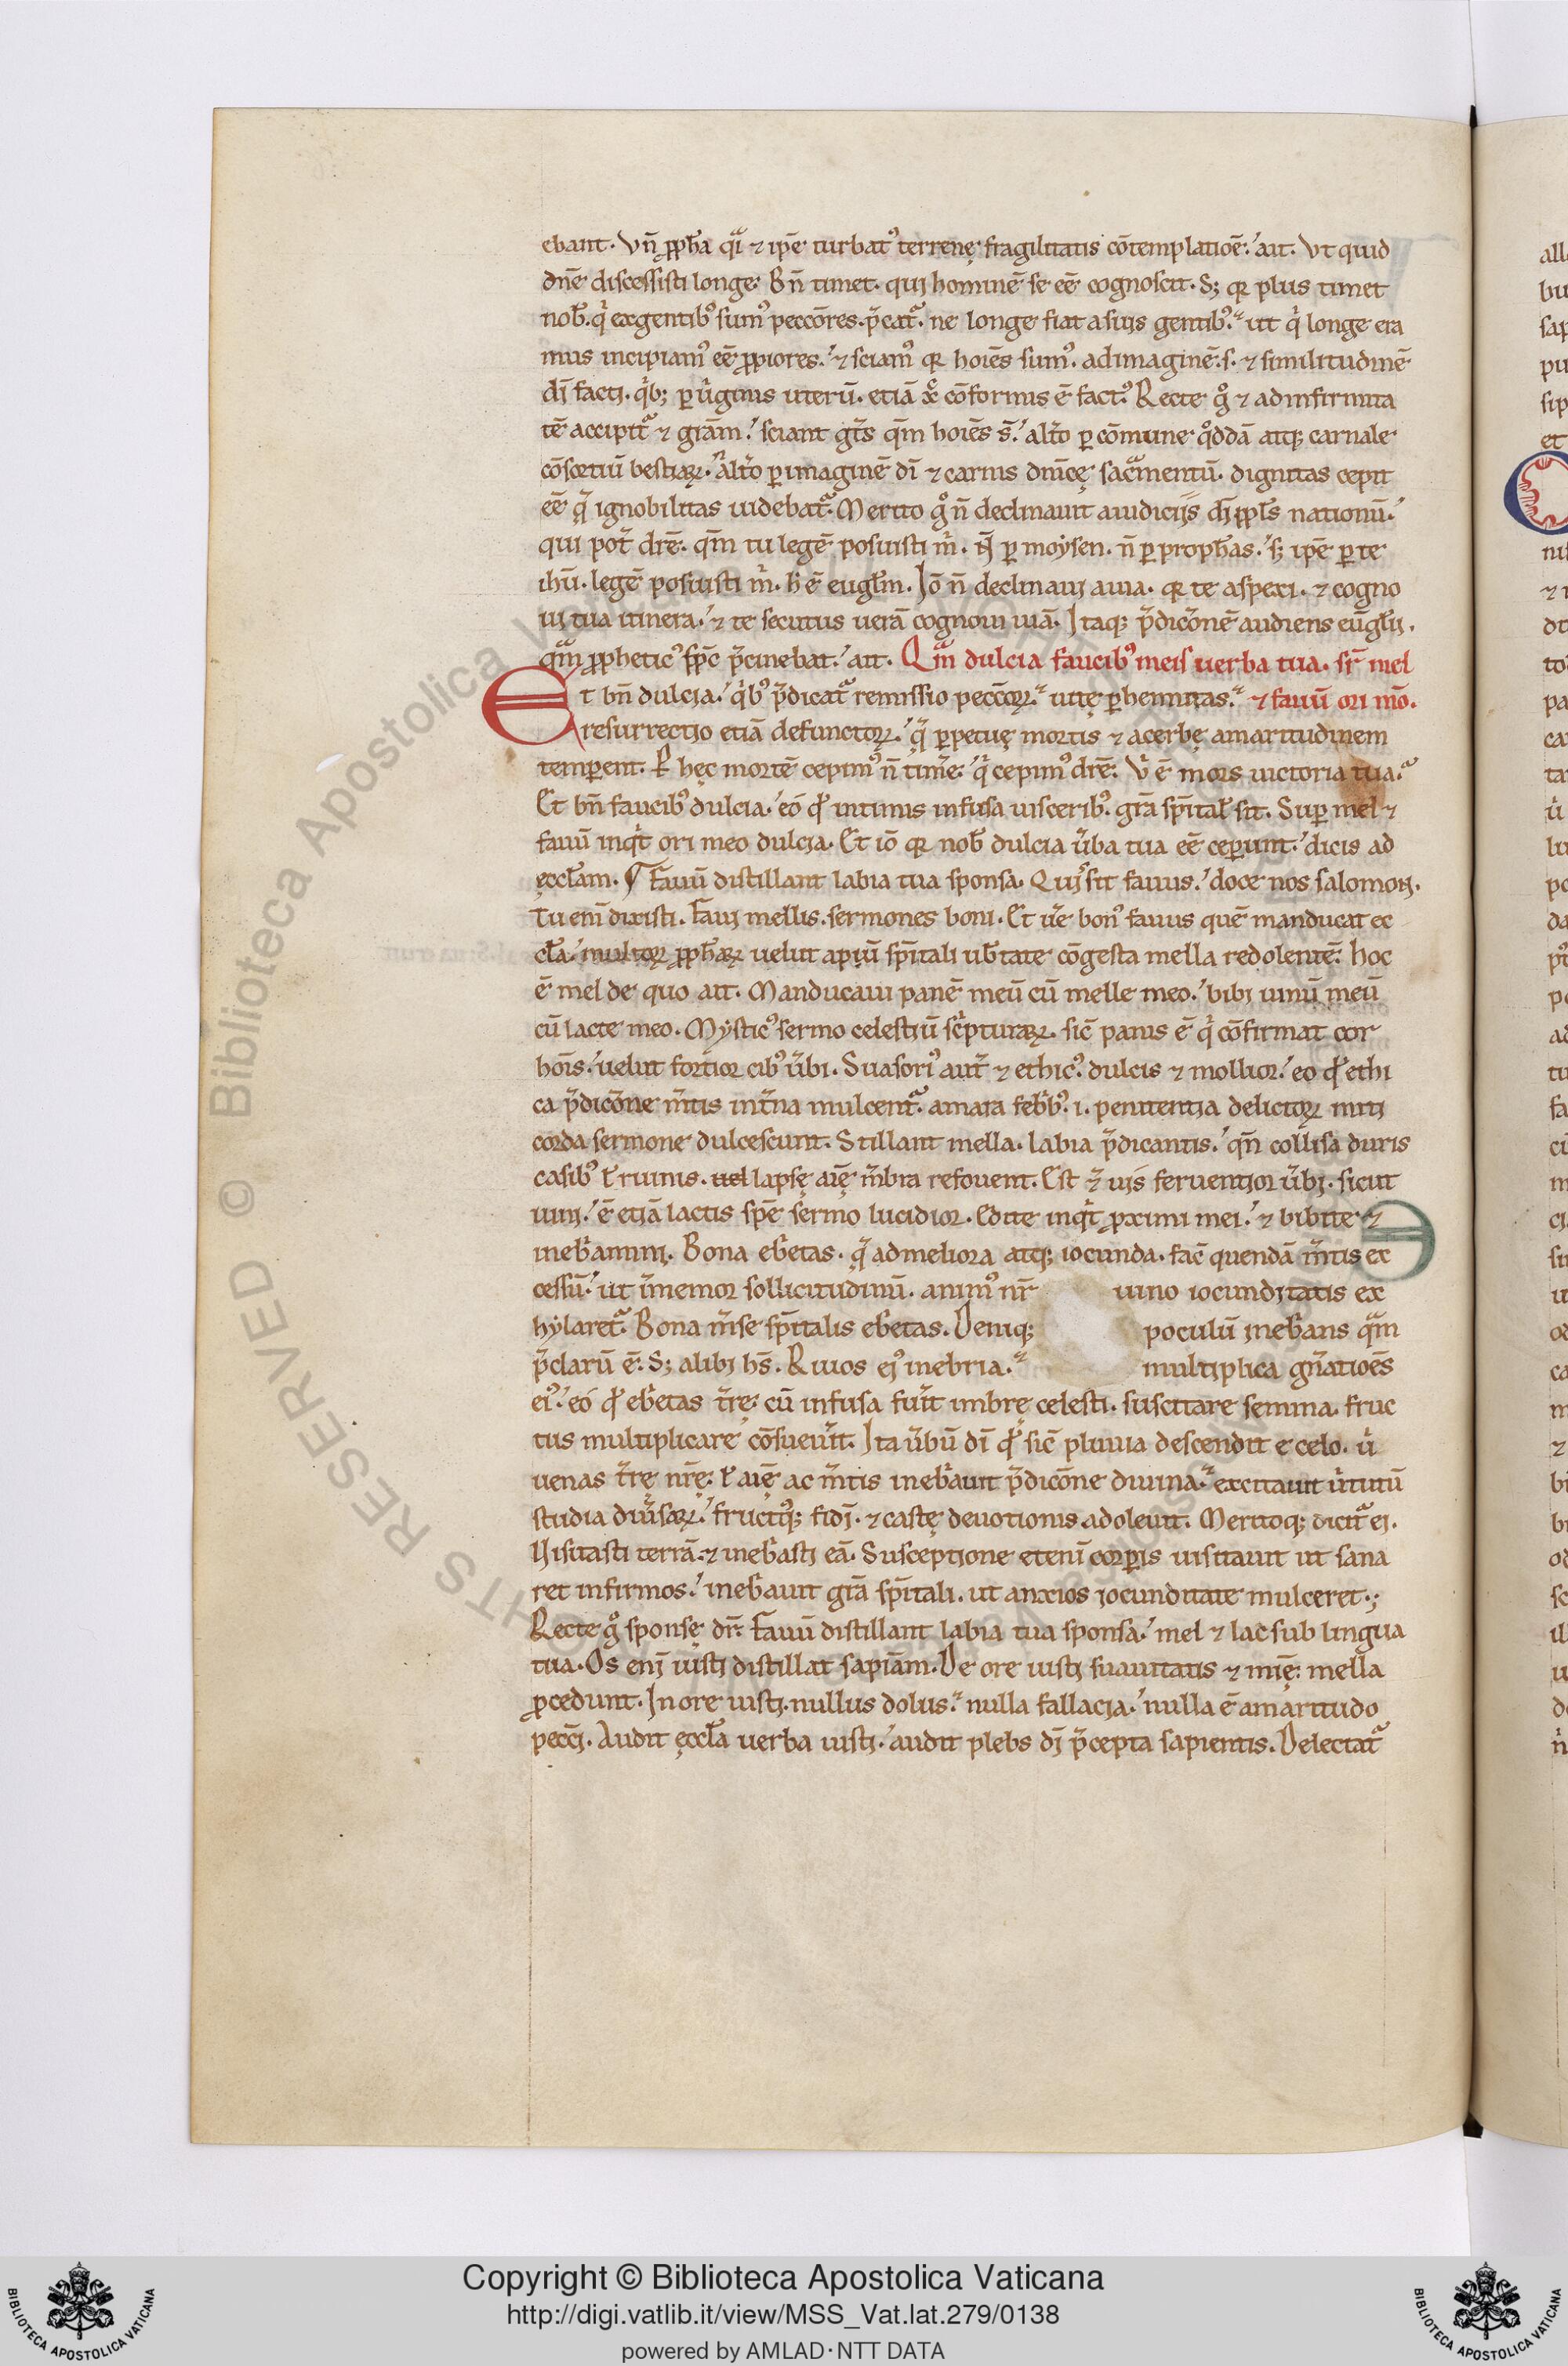 ebant. Vn̄ ꝓph̄a q̄a ⁊ ip̄e turbatꝰ terrenę fragilitatis cōtemplatiōe: ait. Vt quid
dn̄e discessisti longe: B n̄ timet. qui hominē se eē cognoscit. S; qꝛ plus timet
nob̄. q̇ ex gentibꝰ sumꝰ peccōres. p̄cat᷑. ne longe fiat a suis gentibꝰ. ut q̇ longe era
mus incipiamꝰ eē ꝓpiores. ⁊ sciamꝰ qꝛ hoīes sumꝰ. ad imaginē. s. ⁊ similitudinē
dī facti. q̇b; ꝑ u̓ginis uterū. etiā xp̄c cōformis ē factꝰ. Recte g̊ ⁊ ad infirmita
tē accipit᷑ ⁊ grām. sciant gēs qm̄ hoīes s̄. alt̓o ꝑ cōmune qd̊dā atq; carnale
cōsoctiū bestiaꝝ. alt̓o ꝑ imaginē dī ⁊ carnis dn̄icę sac̄mentū. dignitas cepit
eē q̄ ignobilitas uidebat᷑. Merito g̊ n̄ declinauit a iudiciis dī ꝓpl̄s nationū.
qui pot̄ dr̄e. qm̄ tu legē posuisti m̓. N̄ ꝑ moysen. n̄ ꝑ proph̄as. s; ip̄e ꝑ te
ihū. legē posuisti m̓. h̓ ē eugl̄m. Iō n̄ declinaui a uia. qꝛ te aspexi. ⁊ cogno
ui tua itinera. ⁊ te secutus uerā cognoui uiā. Itaq; p̄dicōnē audiens eūgl̄ii.
qm̄ ꝓpheticꝰ sp̄c p̄cinebat. ait. Qm̄ dulcia faucibꝰ meis uerba tua. sr̄ mel
Et bn̄ dulcia. q̇bꝰ p̄dicat᷑ remissio peccōꝝ. uitę ꝑhennitas. ⁊ fauū ori mō.
resurrectio etiā defunctoꝝ. q̄ ꝑpetuę mortis ⁊ acerbę amaritudinem
temꝑent. ꝑ hęc mortē cepimꝰ n̄ tim̓e. q̇ cepimꝰ dr̄e. V̓ ē mors uictoria tua.
Et bn̄ faucibꝰ dulcia. eó qd̓ intimis infusa uisceribꝰ. grā sp̄ital̓ sit. Suꝑ mel ⁊
fauū inqt̓ ori meo dulcia. Et iō qꝛ nob̄ dulcia u̓ba tua eē ceꝑunt. dicis ad
ęccl̄am. ¶ Fauū distillant labia tua sponsa. Quis sit fauus. doce nos salomon.
Tu eni̅ dixisti. Faui mellis. sermones boni. Et ue̓ bonꝰ fauus quē manducat ec
cl̄a. multoꝝ ꝓph̄aꝝ uelut apiū sp̄itali ub̓tate cōgesta mella redolentē: hoc
ē mel de quo ait. Manducaui panē meū cū melle meo. bibi uinū meū
cū lacte meo. Mysticꝰ sermo celestiū sc̓pturaꝝ. sic̄ panis ē q̇ cōfirmat cor
hoīs. uelut fortior cibꝰ u̓bi. Suasoriꝰ aut̓ ⁊ ethicꝰ. dulcis ⁊ mollior. eo qd̓ ethi
ca p̄dicōne m̄tis int̓na mulcent᷑. amara feb̓bꝰ. i. penitentia delictoꝝ miti
corda sermone dulcescunt. Stillant mella. labia p̄dicantis. qn̄ collisa duris
casibꝰ ł ruinis. uel lapsę aīę m̄bra refouent. Est ⁊ uis feruentior u̓bi. sicut
uini. ē etiā lactis sp̄e sermo lucidior. Edite inqt̓ ꝓximi mei. ⁊ bibite ⁊
ineb̓amini. Bona eb̓etas. q̄ ad meliora atq; iocunda. fac̄ quendā m̄tis ex
cessū. ut īmemor sollicitudinū. animꝰ nr̄ uino iocunditatis ex
hylaret᷑. Bona m̄se sp̄italis eb̓etas. Deniq; poculū ineb̓ans qm̄
p̄clarū ē: S; alibi hs̄. Riuos eiꝰ inebria. multiplica gn̄atiōes
eiꝰ. eó qd̓ eb̓etas t̓rę. cū infusa fuit̓ imbrę celesti. suscitare semina. fruc
tus multiplicare cōsueuit̓. Ita u̓bū dī qd̓ sic̄ pluuia descendit e celo. u̓
uenas t̓rę nr̄ę. ł aīę ac m̄tis ineb̓auit p̄dicōne diuina. excitauit u̓tutū
studia diu̓saꝝ. fructusq; fidi. ⁊ castę deuotionis adoleuit. Meritoq; dicit᷑ ei.
Visitasti terrā. ⁊ ineb̓asti eā. Susceptione etenī corꝑis uisitauit ut sana
ret infirmos. ineb̓auit grā sp̄itali. ut anxios iocunditate mulceret.;
Recte g̊ sponsę dr̄. Fauū distillant labia tua sponsa. mel ⁊ lac sub lingua
tua. Os eni̅ iusti distillat sapiām. De ore iusti suauitatis ⁊ mīę mella
ꝓcedunt. In ore iusti. nullus dolus. nulla fallacia. nulla ē amaritudo
pecci̅. Audit ęccl̄a uerba iusti. audit plebs dī p̄cepta sapientis. Delectat᷑
Copyright © Biblioteca Apostolica Vaticana
http://digi.vatlib.it/view/MSS_Vat.lat.279/0138
powered by AMLAD·NTT DATA